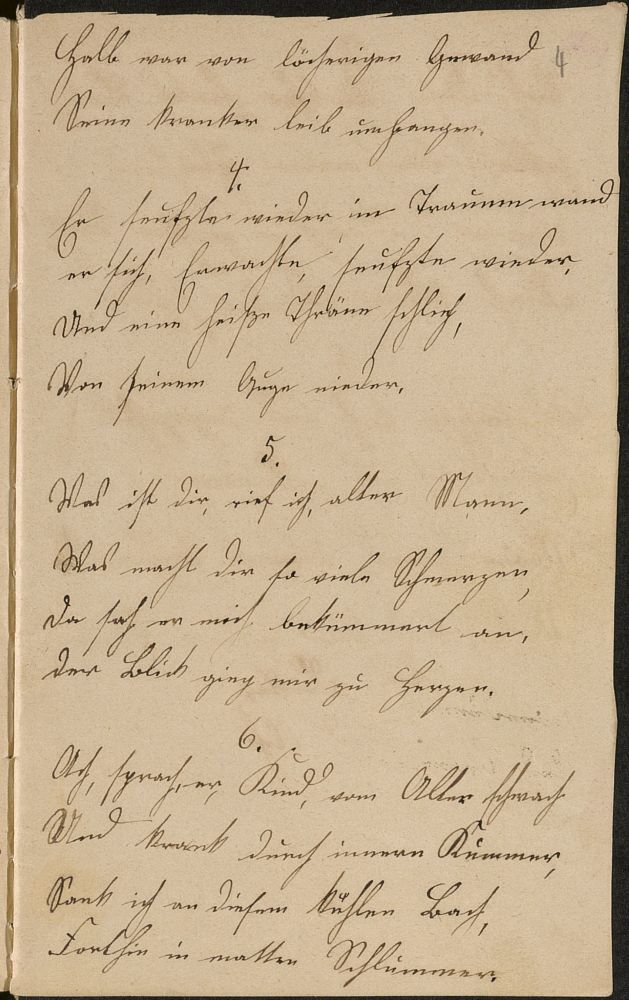 Halb war von löcherigen Gewand
4
Seine kranker leib umhangen.
4.
Er seufzte wieder im Traumm wand
er sich, Erwachte, seufzte wieder,
Und eine heiße Thräne schlich,
Von seinem Auge nieder.
5.
Was ist dir, rief ich, alter Mann,
Was macht dir so viele Schmerzen,
Da sah er mich bekümmert an,
der Blick gieng mir zu Herzen.
6.
Ach, sprach, er, Kind, vom Alter schwach
Und krank durch innern Kummer,
Sank ich an diesem kühlen Bach,
Forthin in matten Schlummer.